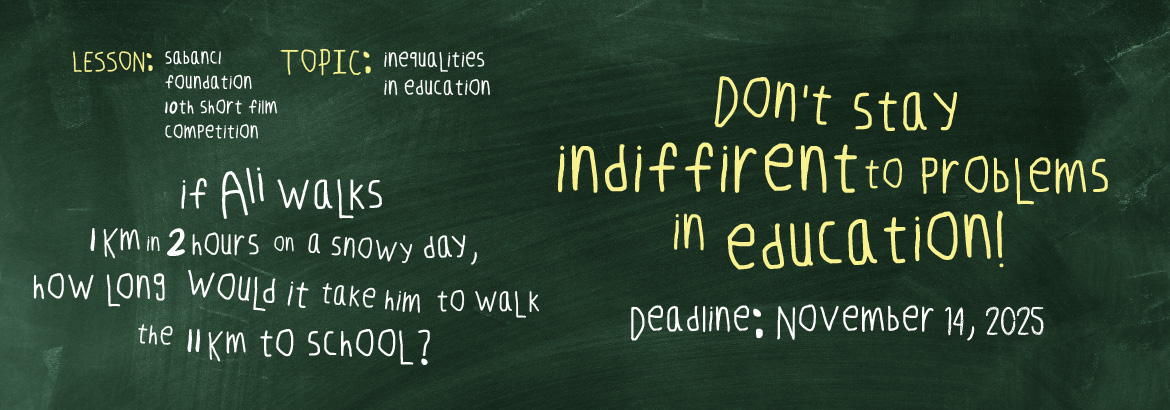 LESSON: sabancı
foundation
10th short film
competition
TOPIC: inequalities
in education
if Ali walks
1 Km in 2 hours on a snowy day,
how long would it take him to walk
the 11 Km to school?
Don't stay
indiffirent to problems
in education!
Deadline: November 14, 2025